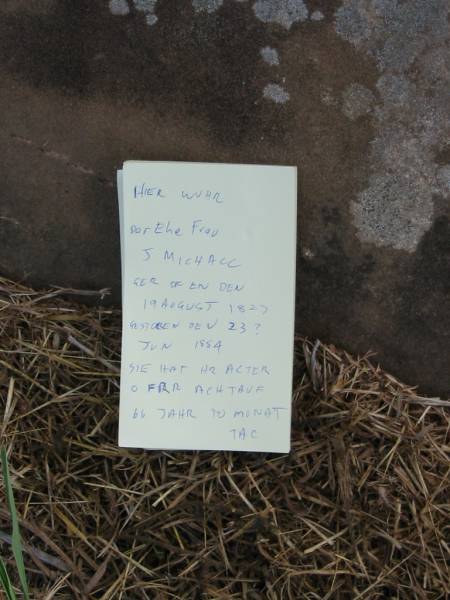 HIER WUHR
Dor Ehe Frau
J MICHALL
GER OF EN DEN
19 AUGUST 1827
GESTOBEN DEN 23?
JUN 1884
SIE HAT HR ALTER
O FRR ACHTAUF
66 JAHR 10 MONAT
TAC